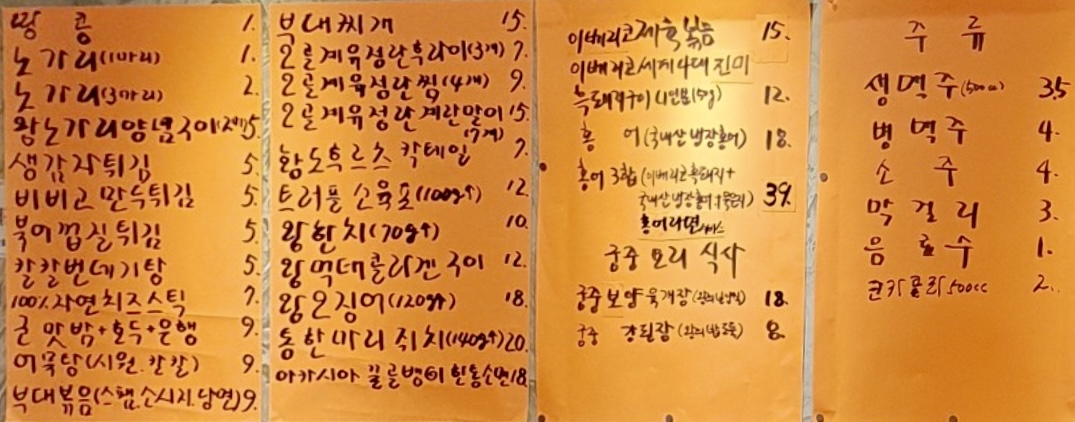 땅콩 1.
노가리(1마리) 1.
노가리(3마리) 2.
왕노가리양념구이 5.
생감자튀김 5.
비비고만두튀김 5.
북어껍질튀김 5.
칼칼번데기탕 5.
100%자연치즈스틱 7.
꿀맛밤+호두+은행 9.
어묵탕(시원.칼칼) 9.
부대볶음(스팸.소시지.당면) 9.
부대찌개 15.
오골계유정란후라이(3개) 7.
오골계유정란찜(4개) 9.
오골계유정란계란말이 15.
(7개)
황도후르츠 칵테일 7.
트러플소육포(100g↑) 12.
왕한치(70g↑) 10.
왕먹태콜라겐구이 12.
왕오징어(120g↑) 18.
통한마리쥐치(140g↑) 20.
아카시아 꿀골뱅이 한통소면 18.
이베리코제육볶음 15.
이베리코세계4대진미
흑돼지구이 12.
홍어(국내산냉장홍어) 18.
홍어3합(이베리코흑돼지+
국내산냉장홍어+묵은지) 39.
홍어라면
궁중요리 식사
궁중보양육개장 18.
궁중 강된장 8.
주류
생맥주(500cc) 3.5
병맥주 4.
소주 4.
막걸리 3.
음료수 1.
코카콜라500cc 2.